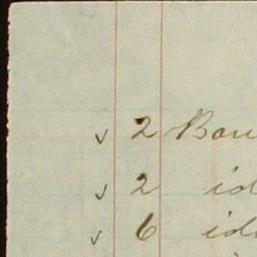 ✓ 2 Bar
✓ 2 id
✓ 6 id